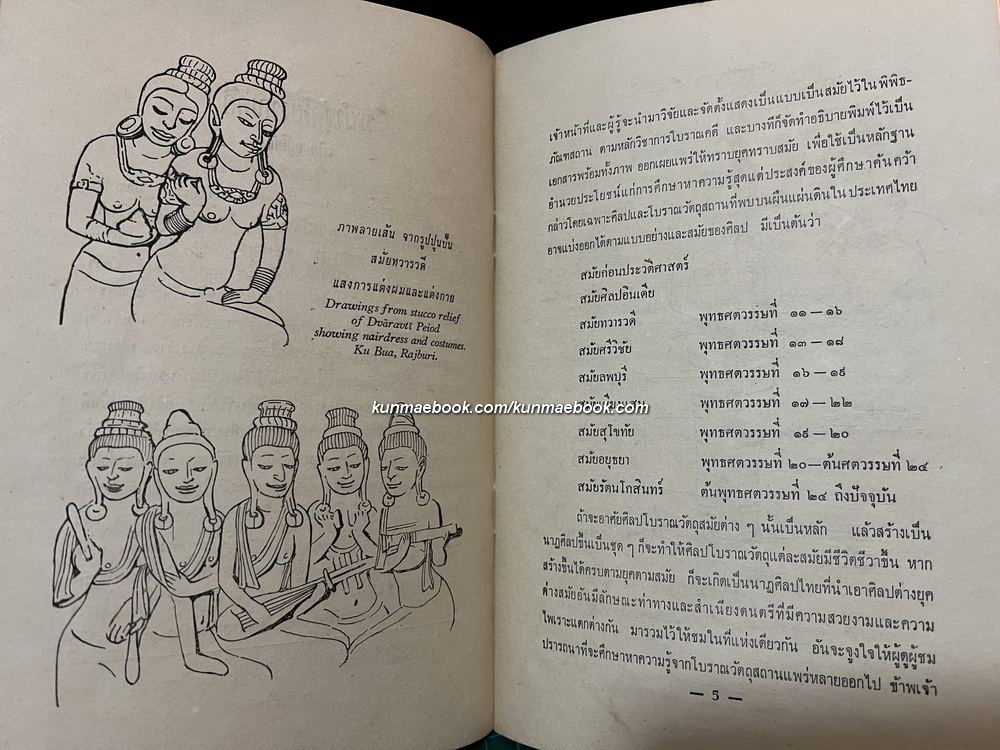 ภาพลายเส้น จากรูปปูนปั้น
สมัยทวารวดี
แสงการแต่งผมและแต่งกาย
Drawings from stucco relief
of Dvāravtī Peiod
showing nairdress and costumes.
Ku Bua, Rajburi.
เจ้าหน้าที่และผู้รู้จะนำมาวิจัยและจัดตั้งแสดงเป็นแบบเป็นสมัยไว้ในพิพิธ-
ภัณฑสถาน ตามหลักวิชาการโบราณคดี และบางทีก็จัดทำอธิบายพิมพ์ไว้เป็น
เอกสารพร้อมทั้งภาพ ออกเผยแพร่ให้ทราบยุคทราบสมัย เพื่อใช้เป็นหลักฐาน
อำนวยประโยชน์แก่การศึกษาหาความรู้สุดแต่ประสงค์ของผู้ศึกษาค้นคว้า
กล่าวโดยเฉพาะศิลปและโบราณวัตถุสถานที่พบบนผืนแผ่นดินในประเทศไทย
อาจแบ่งออกได้ตามแบบอย่างและสมัยของศิลป มีเป็นต้นว่า
สมัยก่อนประวัติศาสตร์
สมัยศิลปอินเดีย
สมัยทวารวดี พุทธศตวรรษที่ ๑๑ — ๑๖
สมัยศรีวิชัย พุทธศตวรรษที่ ๑๓ — ๑๘
สมัยลพบุรี พุทธศตวรรษที่ ๑๖ — ๑๙
พุทธศตวรรษที่ ๑๗ — ๒๒
kunmaebook.com/kunmaebook.com
สมัยสุโขทัย พุทธศตวรรษที่ ๑๙ — ๒๐
สมัยอยุธยา พุทธศตวรรษที่ ๒๐—ต้นศตวรรษที่ ๒๔
สมัยรัตนโกสินทร์ ต้นพุทธศตวรรษที่ ๒๔ ถึงปัจจุบัน
ถ้าจะอาศัยศิลปโบราณวัตถุสมัยต่าง ๆ นั้นเป็นหลัก แล้วสร้างเป็น
นาฏศิลปขึ้นเป็นชุด ๆ ก็จะทำให้ศิลปโบราณวัตถุแต่ละสมัยมีชีวิตชีวาขึ้น หาก
สร้างขึ้นได้ครบตามยุคตามสมัย ก็จะเกิดเป็นนาฏศิลปไทยที่นำเอาศิลปต่างยุค
ต่างสมัยอันมีลักษณะท่าทางและสำเนียงดนตรีที่มีความสวยงามและความ
ไพเราะแตกต่างกัน มารวมไว้ให้ชมในที่แห่งเดียวกัน อันจะจูงใจให้ผู้ดูผู้ชม
ปรารถนาที่จะศึกษาหาความรู้จากโบราณวัตถุสถานแพร่หลายออกไป ข้าพเจ้า
— 5 —